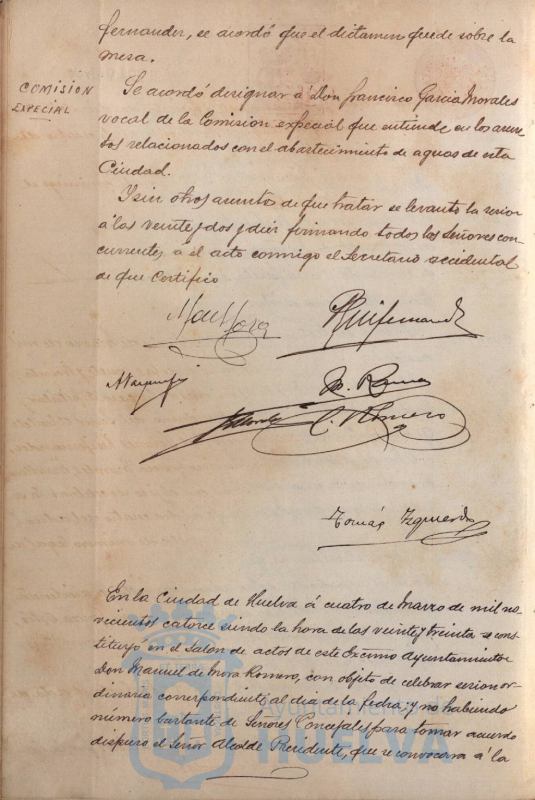 fernandez, se acordó que el dictamen quede sobre la
mesa.
COMISION
ESPECIAL
Se acordó designar á Don Francisco Garcia Morales
vocal de la Comision especial que entiende en los asun-
tos relacionados con el abastecimiento de aguas de esta
Ciudad.
Y sin otros asuntos de que tratar se levantó la sesion
á las veinte y dos y diez firmando todos los Señores con-
currentes á el acto conmigo el Secretario accidental
de que certifico
Ruifernandez
C. Romero
Tomás Izquierdo
En la Ciudad de Huelva á cuatro de Marzo de mil no-
vecientos catorce siendo la hora de las veinte y treinta se cons-
tituyó en el Salon de actos de este Excmo Ayuntamiento
Don Manuel de Mora Romero, con objeto de celebrar sesion or-
dinaria correspondiente al dia de la fecha; y no habiendo
número bastante de Señores Concejales para tomar acuerdo
dispuso el Señor Alcalde Presidente, que se convocara á la
Ayuntamiento de
HUELVA